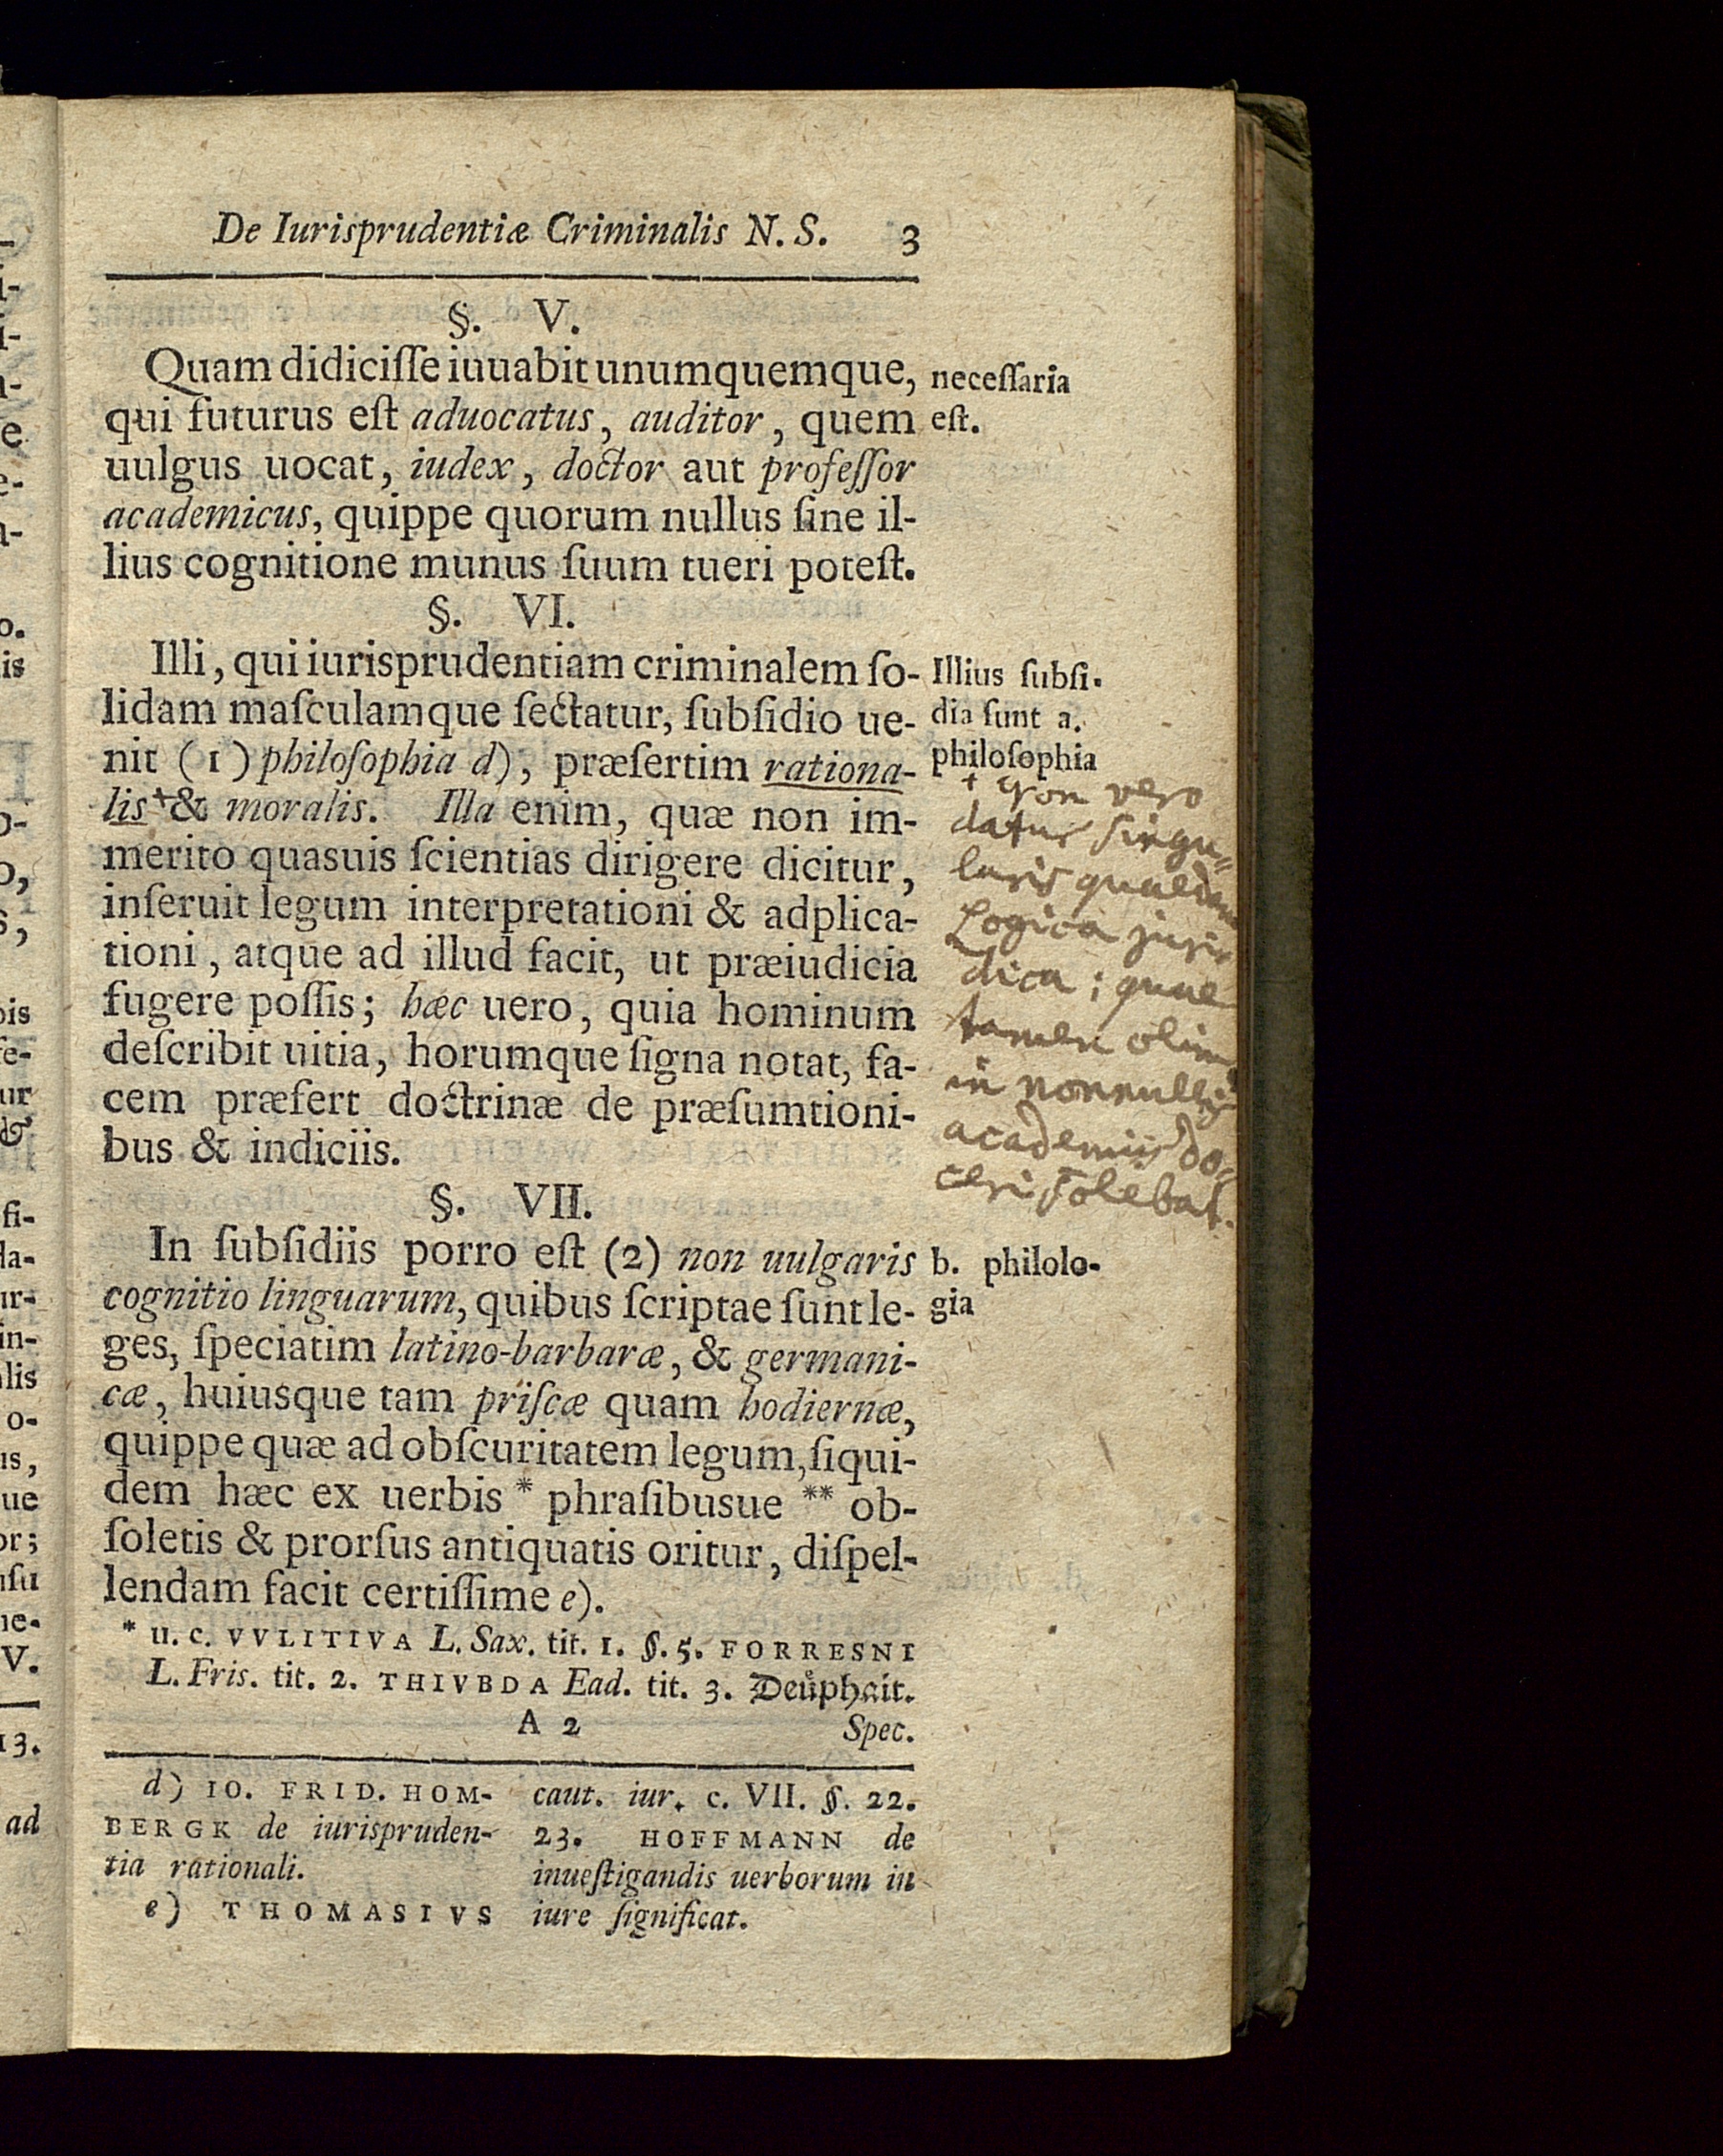 De Iurisprudentiæ Criminalis N. S. 3
§. V.
Quam didiciſſe iuuabit unumquemque,
qui futurus eſt aduocatus, auditor, quem
uulgus uocat, iudex, doctor aut profeſſor
academicus, quippe quorum nullus ſine il-
lius cognitione munus ſuum tueri poteſt.
neceſſaria
eſt.
§. VI.
Illi, qui iurisprudentiam criminalem ſo-
lidam maſculamque ſectatur, ſubſidio ue-
nit (1) philoſophia d), præſertim rationa-
lis + & moralis. Illa enim, quæ non im-
merito quasuis ſcientias dirigere dicitur,
inſeruit legum interpretationi & adplica-
tioni, atque ad illud facit, ut præiudicia
fugere poſſis; hæc uero, quia hominum
deſcribit uitia, horumque ſigna notat, fa-
cem præfert doctrinæ de præſumtioni-
bus & indiciis.
Illius ſubſi-
dia ſunt a.
philoſophia
+ non vero
datur singu=
laris quaedam
Logica juri
dica; quae
tamen olim
in nonnullis
academiis do=
ceri solebat.
§. VII.
In ſubſidiis porro eſt (2) non uulgaris
cognitio linguarum, quibus ſcriptae ſunt le-
ges, ſpeciatim latino-barbaræ, & germani-
cæ, huiusque tam priſcæ quam hodiernæ,
quippe quæ ad obſcuritatem legum, ſiqui-
dem hæc ex uerbis * phraſibusue ** ob-
ſoletis & prorſus antiquatis oritur, diſpel-
lendam facit certiſſime e).
b. philolo-
gia
* u. c. VVLITIVA L. Sax. tit. 1. §. 5. FORRESNI
L. Fris. tit. 2. THIVBDA Ead. tit. 3. Deuphait.
A 2 Spec.
d) IO. FRID. HOM-
BERGK de iurispruden-
tia rationali.
e) THOMASIVS
caut. iur. c. VII. §. 22.
23. HOFFMANN de
inueſtigandis uerborum in
iure ſignificat.